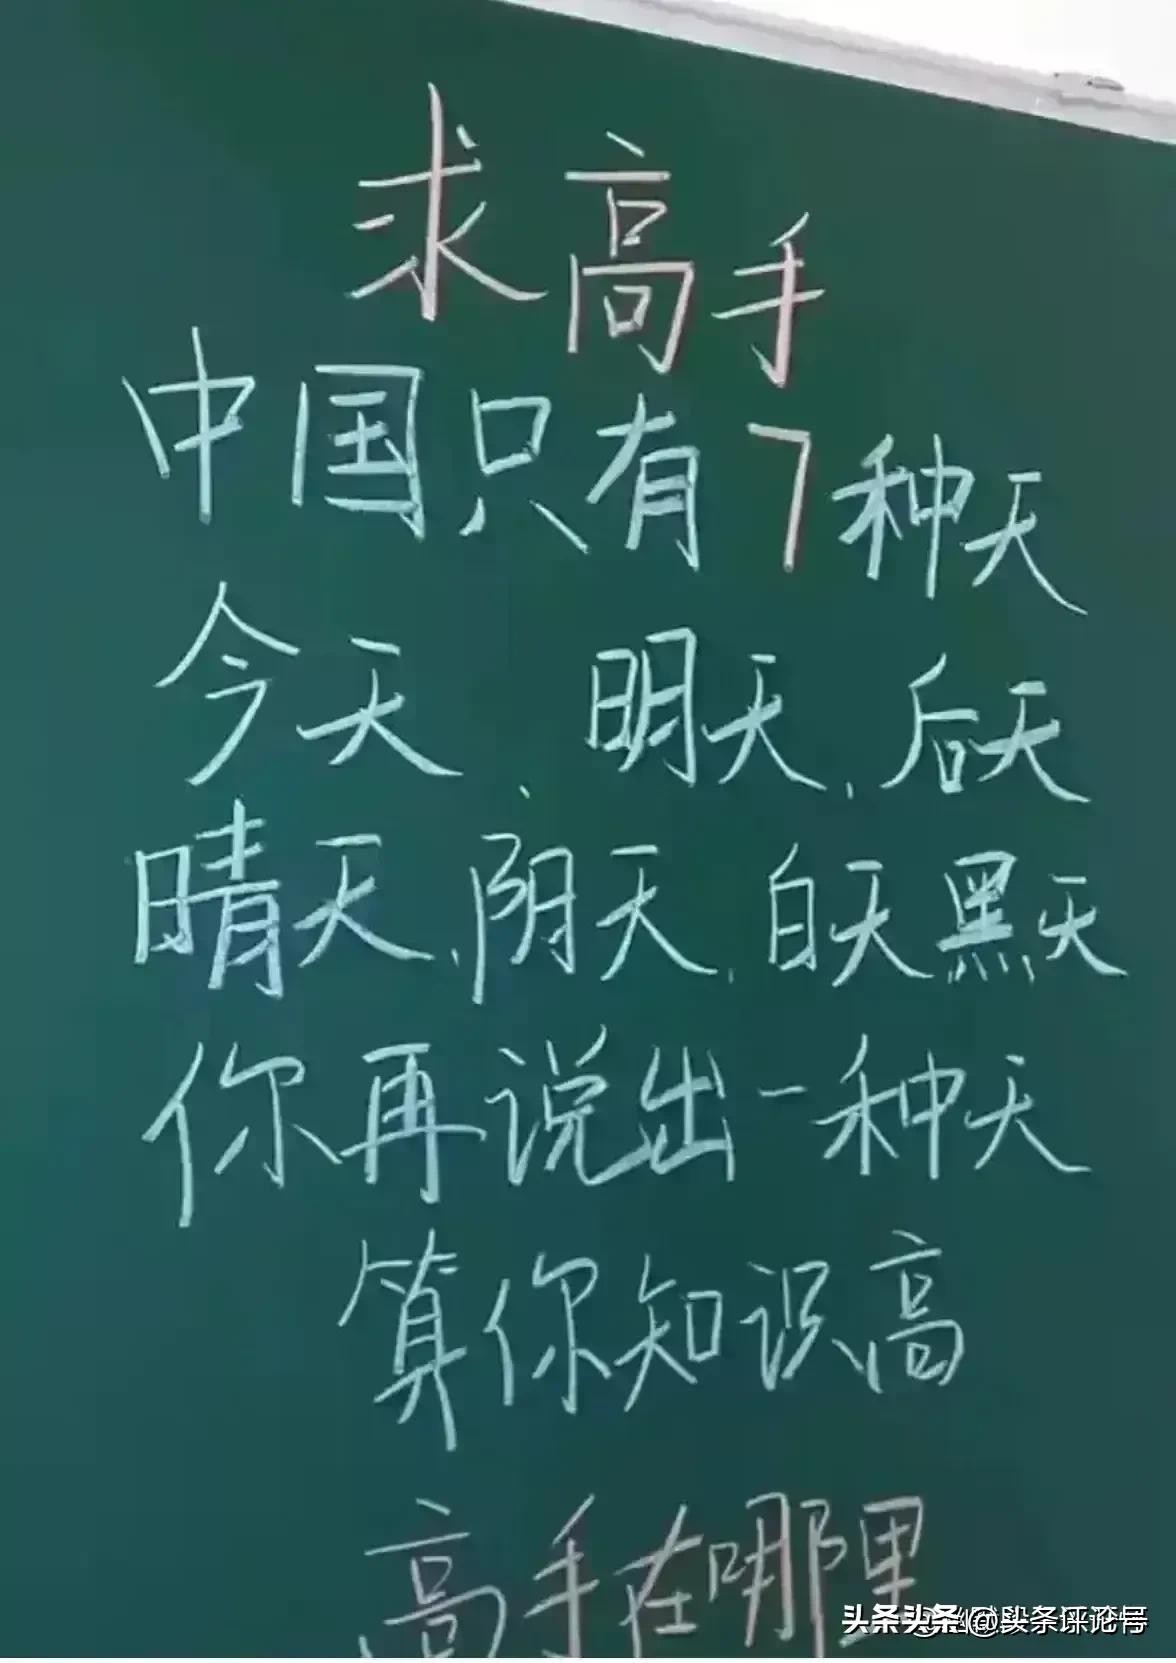 求高手
中国只有7种天
今天、明天、后天
晴天、阴天、白天黑天
你再说出一种天
算你知识高
高手在哪里
头条头条
@头条评论号